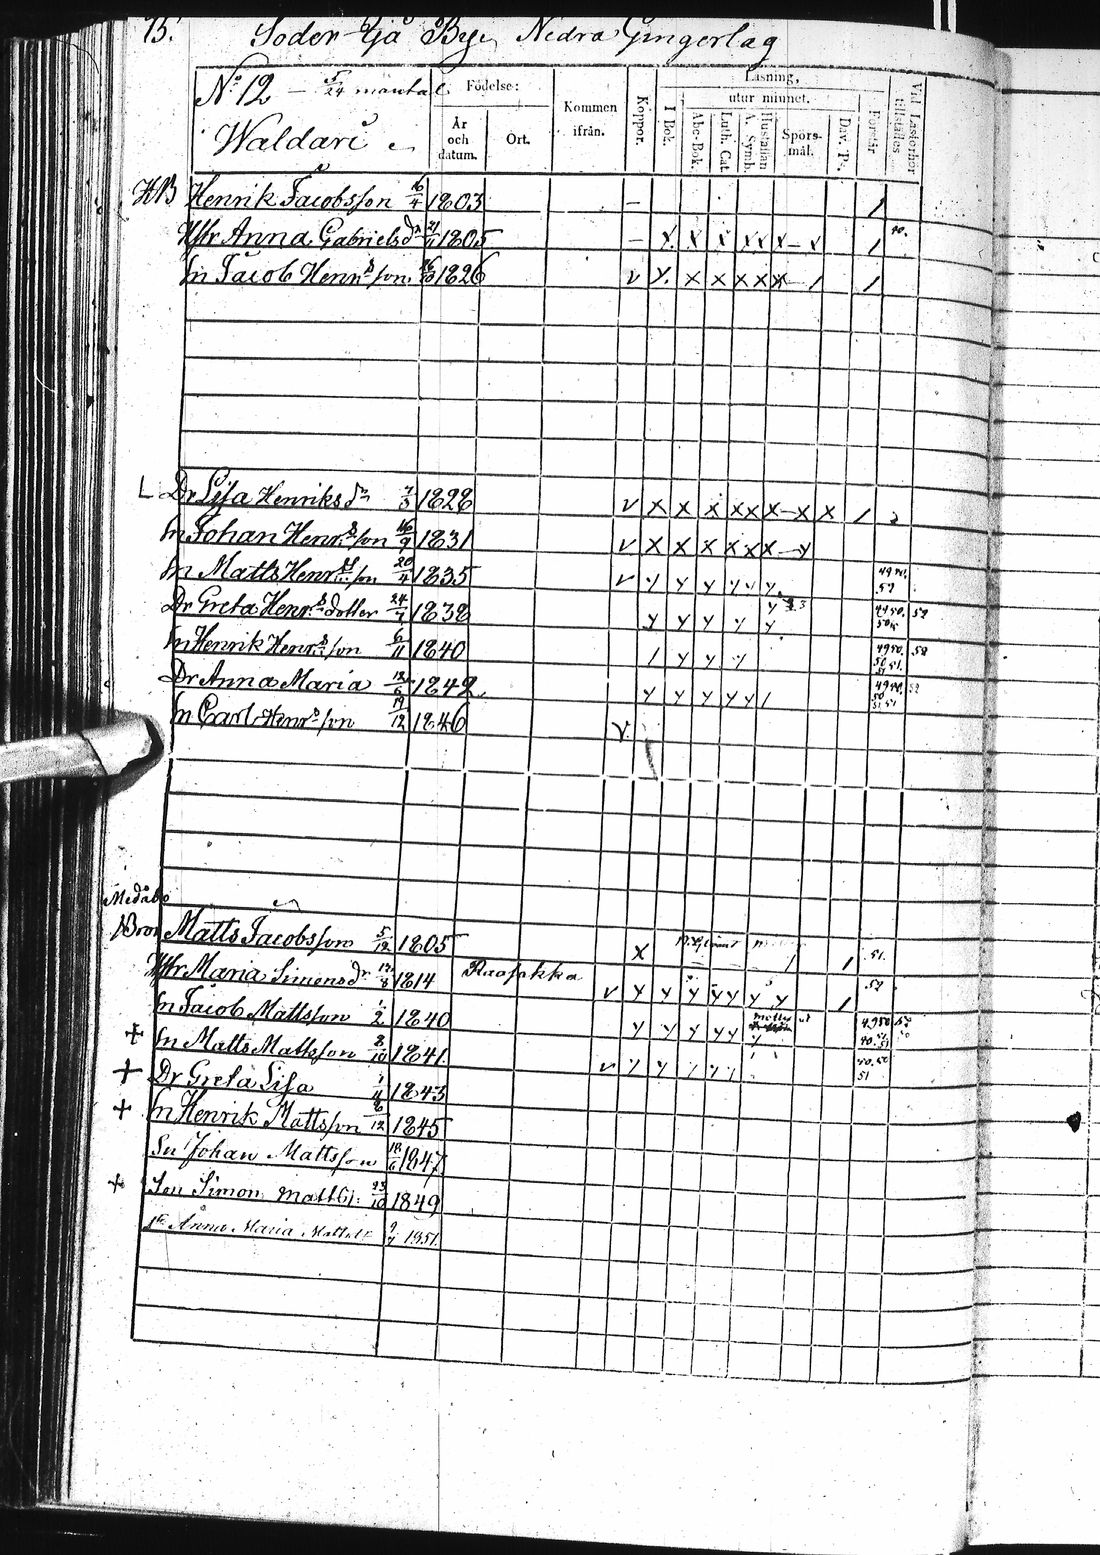 75. Söder Yjå Bye, Nedra Gingerlag
No 12 — 5/24 mantal
Waldari
Födelse:
År och datum.
Ort.
Kommen ifrån.
Koppor.
Läsning,
I Bok.
utur minnet.
Abc-Bok.
Luth. Cat.
Hustaflan A. Symb.
Spörs-mål.
Dav. Ps.
Förstår
Vid Läsförhör tillstädes.
HB Henrik Jacobsson 16/4 1803 — /
Hstr Anna Gabrielsdr 1805 — x x x x x x — x /
Sn Jacob Henrs son 1826 v x x x x x x — / /
L Dr Lisa Henriks dr 7/3 1828 v x x x x x x — x x /
Sn Johan Henrs son 16/9 1831 v x x x x x x — y
Sn Matts Henrs son 20/4 1835 v y y y y y y
Dr Greta Henrs dotter 24/7 1838 y y y y y
Sn Henrik Henrs son 6/11 1840 / y y y
Dr Anna Maria 12/6 1842 y y y y y /
Sn Carl Henrs son 19/12 1846 v
Medåbo
Bror Matts Jacobsson 5/12 1805 x / / 51.
Hstr Maria Simonsdr 1814 v y y y y y y y / 52
Sn Jacob Mattsson 1/2 1840 y y y y y
+ Sn Matts Mattsson 8/10 1841
+ Dr Greta Lisa 1843
+ Sn Henrik Mattsson 6/12 1845
Sn Johan Mattsson 18/6 1847
+ Son Simon Matts: 23/10 1849
Anna Maria 1851.